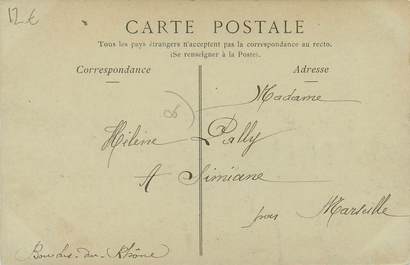 12 €
CARTE POSTALE
Tous les pays étrangers n'acceptent pas la correspondance au recto.
(Se renseigner à la Poste).
Correspondance Adresse
Madame
Hélène Pally
A Simiane
près Marseille
Bouches-du-Rhône